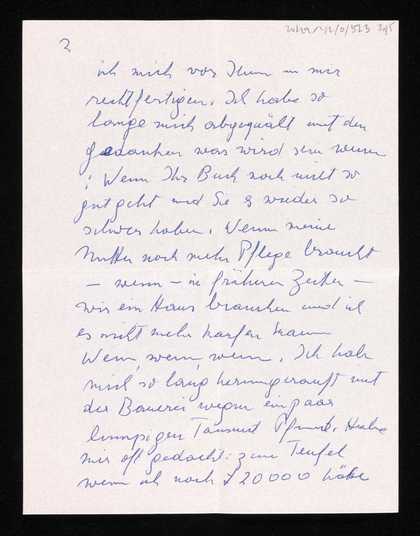 2
ich mich vor Ihnen in mir
rechtfertigen. Ich habe so
lange mich abgequält mit den
Gedanken was wird sein wenn
: Wenn Ihr Buch noch nicht so
gut geht und Sie es wieder so
schwer haben. Wenn meine
Mutter noch mehr Pflege braucht
– wenn – in früheren Zeiten –
wir ein Haus brauchen und ich
es nicht mehr kaufen kann
Wenn, wenn, wenn. Ich habe
mich so lang herumgerauft mit
der Bauerei wegen ein paar
lumpigen Tausend Pfund. Habe
mir oft gedacht: zum Teufel
wenn ich noch £ 20000 hätte